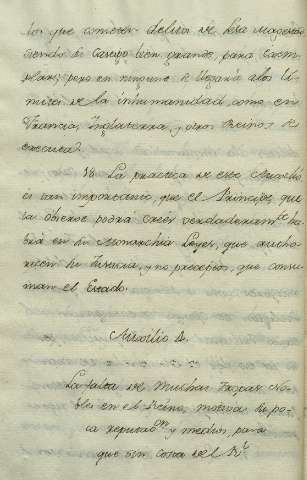 los que cometen delitos de lesa Magestad
siendo el castigo bien grande, para exem-
plar; pero en ninguno se llegará a los li-
mites de la inhumanidad, como en
Francia, Inglaterra, y otros Reinos se
executa.
14. La practica de este Auxilio
es tan importante, que el Principe, que
la observe podrá creer verdaderam.te ha-
brá en su Monarchia Leyes, que autho-
rizen su Justicia, y no preceptos, que consu-
man el Estado.
Auxilio 4.
La falta de muchas Tropas No-
bles en el Reino, motiva su po-
ca reputa.on y medios, para
que sin costa del R.l